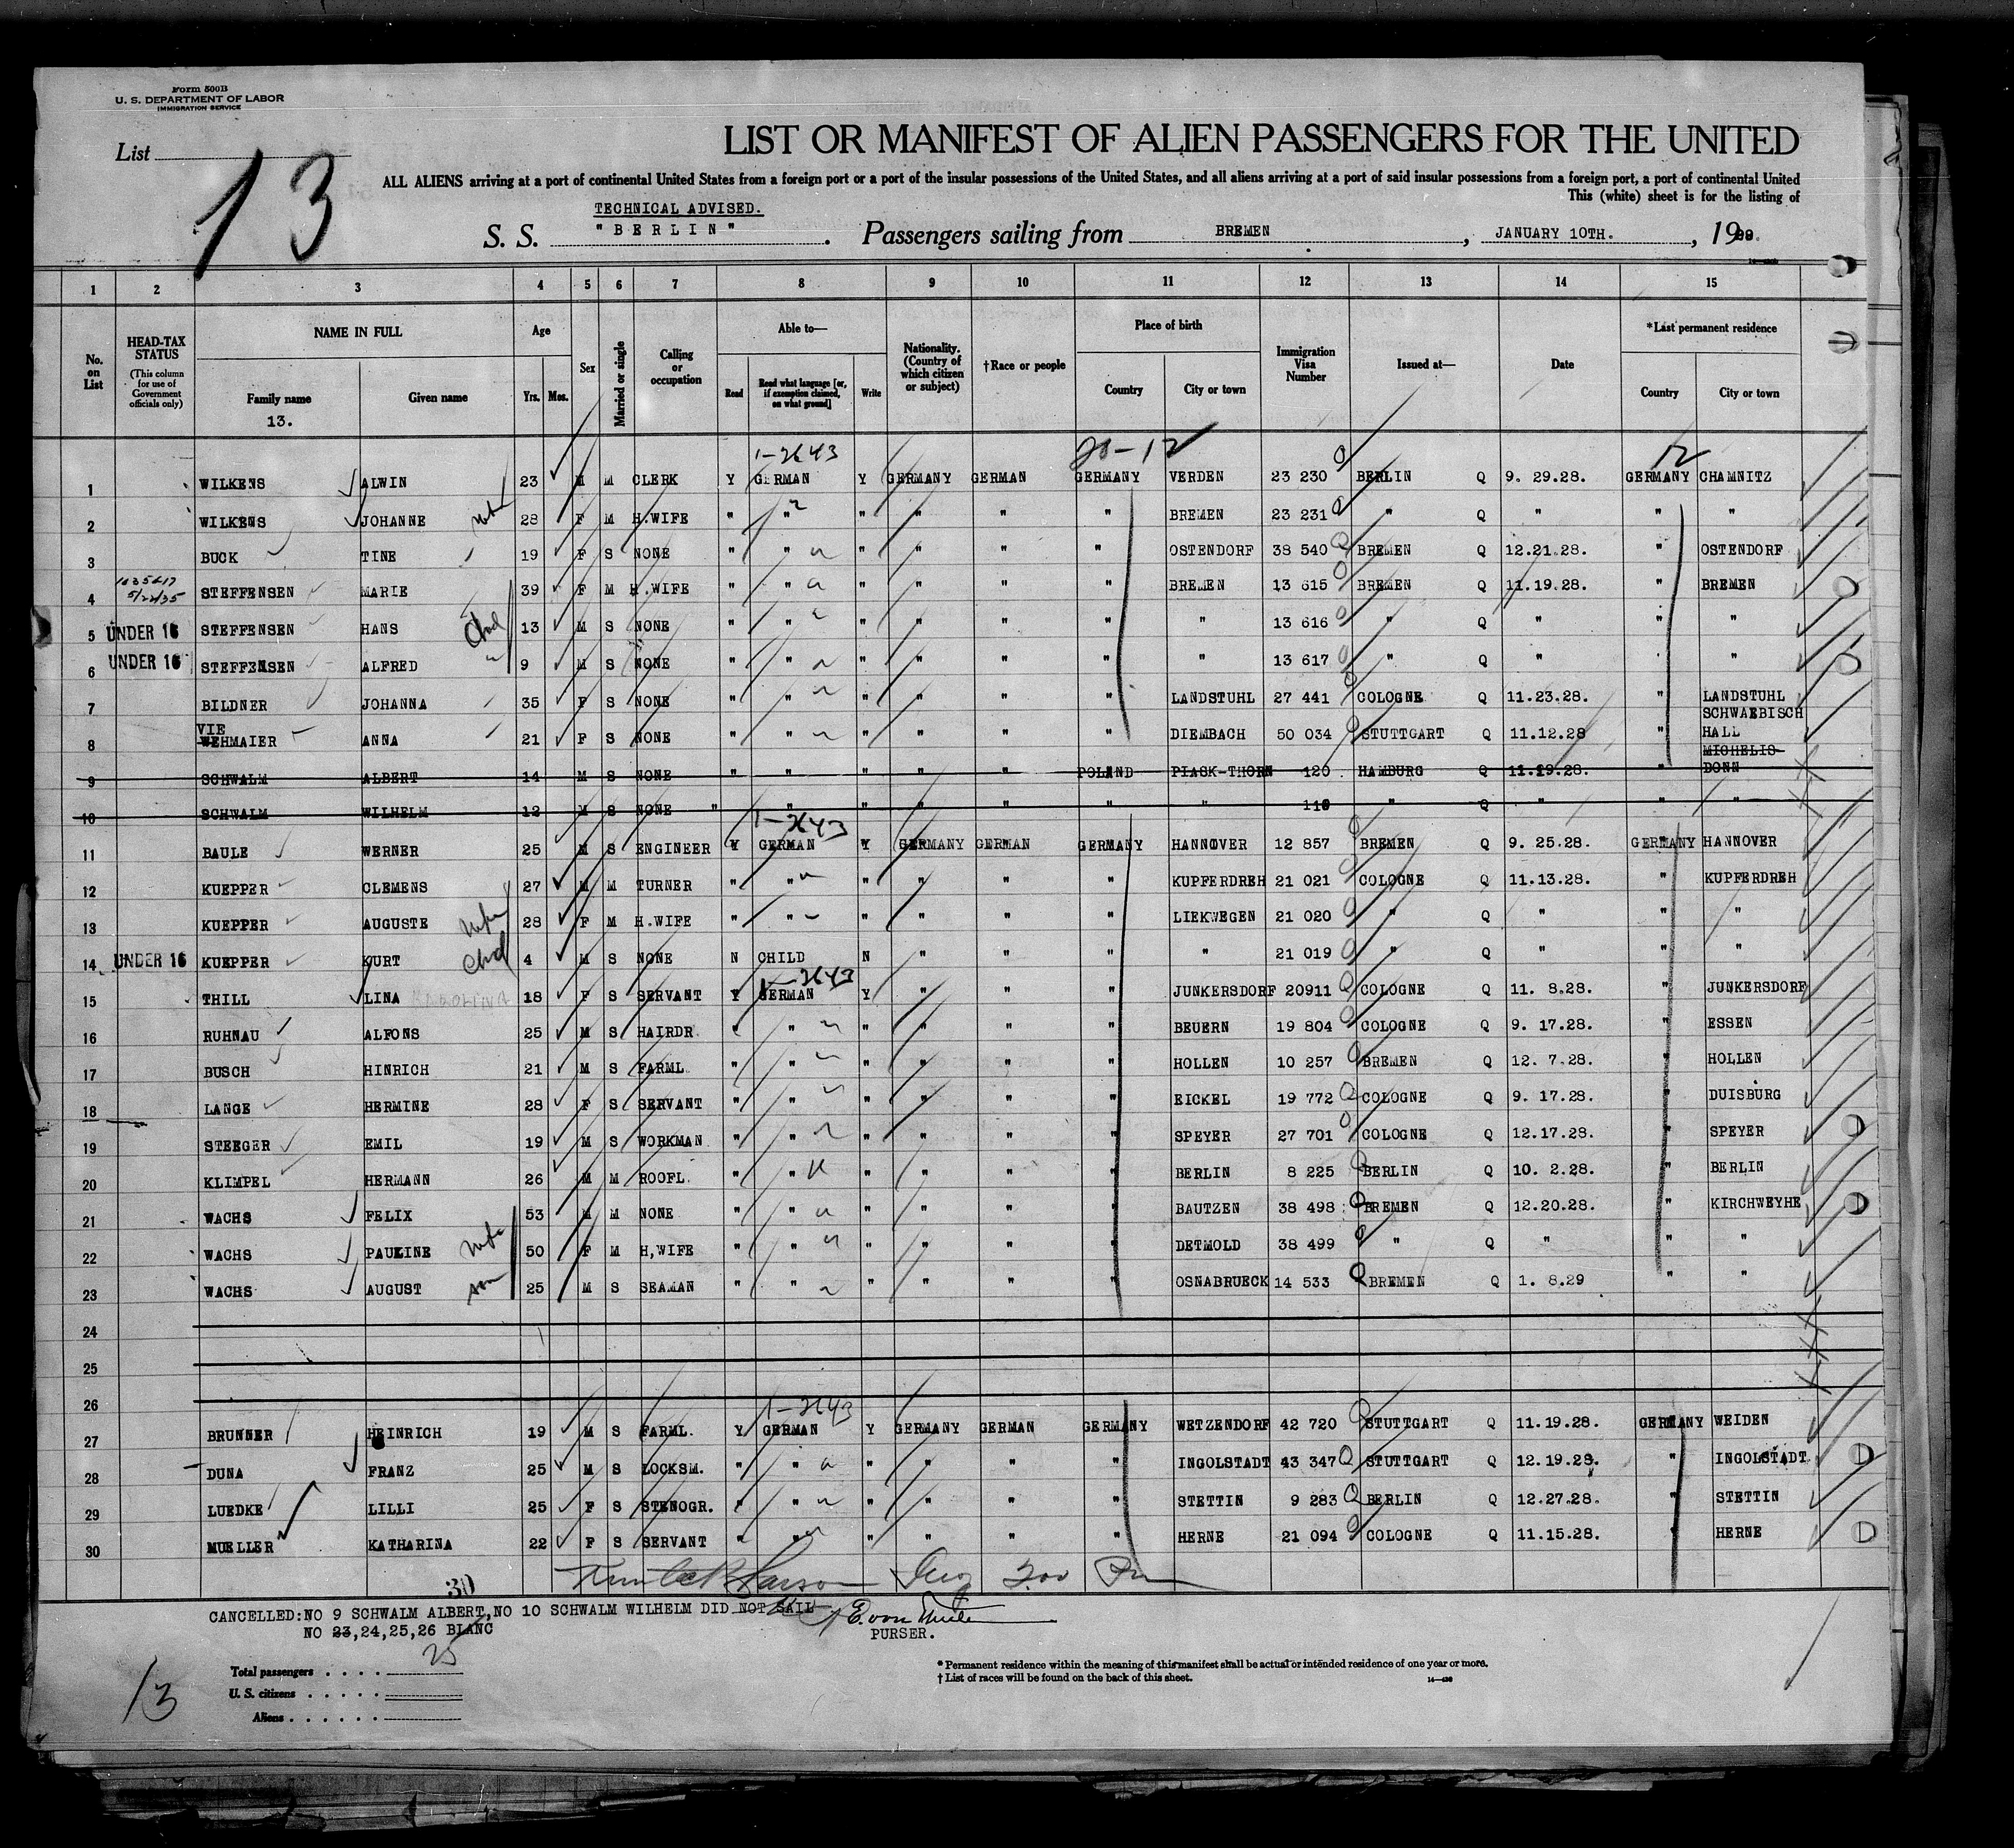 Form 500B
U. S. DEPARTMENT OF LABOR
IMMIGRATION SERVICE
List
13
LIST OR MANIFEST OF ALIEN PASSENGERS FOR THE UNITED
ALL ALIENS arriving at a port of continental United States from a foreign port or a port of the insular possessions of the United States, and all aliens arriving at a port of said insular possessions from a foreign port, a port of continental United
This (white) sheet is for the listing of
TECHNICAL ADVISED.
S. S. "BERLIN". Passengers sailing from BREMEN, JANUARY 10TH., 19
1 2 3 4 5 6 7 8 9 10 11 12 13 14 15
No. on List
HEAD-TAX STATUS (This column for use of Government officials only)
NAME IN FULL Family name Given name
13.
Age Yrs. Mos.
Sex
Married or single
Calling or occupation
Able to— Read Read what language [or, if exemption claimed, on what ground] Write
Nationality. (Country of which citizen or subject)
†Race or people
Place of birth Country City or town
Immigration Visa Number
Issued at—
Date
*Last permanent residence Country City or town
1-2643 20-12 12
1 WILKENS ALWIN 23 M M CLERK Y GERMAN Y GERMANY GERMAN GERMANY VERDEN 23 230 BERLIN Q 9. 29.28. GERMANY CHAMNITZ
2 WILKENS JOHANNE 28 F M H.WIFE " " " " " " BREMEN 23 231 " Q " " "
3 BUCK TINE 19 F S NONE " " " " " " OSTENDORF 38 540 BREMEN Q 12.21.28. " OSTENDORF
5/22/35
4 STEFFENSEN MARIE 39 F M H.WIFE " " " " " " BREMEN 13 615 BREMEN Q 11.19.28. " BREMEN
5 UNDER 16 STEFFENSEN HANS Chd 13 M S NONE " " " " " " " 13 616 " Q " " "
6 UNDER 16 STEFFENSEN ALFRED " 9 M S NONE " " " " " " " 13 617 " Q " ' "
7 BILDNER JOHANNA 35 F S NONE " " " " " " LANDSTUHL 27 441 COLOGNE Q 11.23.28. " LANDSTUHL
VIE SCHWAEBISCH
8 WEHMAIER ANNA 21 F S NONE " " " " " " DIEMBACH 50 034 STUTTGART Q 11.12.28 " HALL
MICHELIS-
9 SCHWALM ALBERT 14 M S NONE " " " " " POLAND PIASK-THORN 120 HAMBURG Q 11.29.28. " DONN
10 SCHWALM WILHELM 12 M S NONE " " " " " " " 119 " Q " " "
1-2643
11 BAULE WERNER 25 M S ENGINEER Y GERMAN Y GERMANY GERMAN GERMANY HANNOVER 12 857 BREMEN Q 9. 25.28. GERMANY HANNOVER
12 KUEPPER CLEMENS 27 M M TURNER " " " " " " KUPFERDREH 21 021 COLOGNE Q 11.13.28. " KUPFERDREH
13 KUEPPER AUGUSTE wife 28 F M H.WIFE " " " " " " LIEKWEGEN 21 020 " Q " " "
14 UNDER 16 KUEPPER KURT Chd 4 M S NONE N CHILD N " " " " 21 019 " Q " " "
1-2643
15 THILL LINA KAROLINA 18 F S SERVANT Y GERMAN Y " " " JUNKERSDORF 20911 COLOGNE Q 11. 8.28. " JUNKERSDORF
16 RUHNAU ALFONS 25 M S HAIRDR. " " " " " " BEUERN 19 804 COLOGNE Q 9. 17.28. " ESSEN
17 BUSCH HINRICH 21 M S FARML. " " " " " " HOLLEN 10 257 BREMEN Q 12. 7.28. " HOLLEN
18 LANGE HERMINE 28 F S SERVANT " " " " " " EICKEL 19 772 COLOGNE Q 9. 17.28. " DUISBURG
19 STEEGER EMIL 19 M S WORKMAN " " " " " " SPEYER 27 701 COLOGNE Q 12.17.28. " SPEYER
20 KLIMPEL HERMANN 26 M M ROOFL. " " " " " " BERLIN 8 225 BERLIN Q 10. 2.28. " BERLIN
21 WACHS FELIX 53 M M NONE " " " " " " BAUTZEN 38 498 BREMEN Q 12.20.28. " KIRCHWEYHE
22 WACHS PAULINE wife 50 F M H,WIFE " " " " " " DETMOLD 38 499 " Q " " "
23 WACHS AUGUST son 25 M S SEAMAN " " " " " " OSNABRUECK 14 533 BREMEN Q 1. 8.29 " "
24
25
26
1-2643
27 BRUNNER HEINRICH 19 M S FARML. Y GERMAN Y GERMANY GERMAN GERMANY WETZENDORF 42 720 STUTTGART Q 11.19.28. GERMANY WEIDEN
28 DUNA FRANZ 25 M S LOCKSM. " " " " " " INGOLSTADT 43 347 STUTTGART Q 12.19.28. " INGOLSTADT
29 LUEDKE LILLI 25 F S STENOGR. " " " " " " STETTIN 9 283 BERLIN Q 12.27.28. " STETTIN
30 MUELLER KATHARINA 22 F S SERVANT " " " " " " HERNE 21 094 COLOGNE Q 11.15.28. " HERNE
30
CANCELLED:NO 9 SCHWALM ALBERT,NO 10 SCHWALM WILHELM DID NOT SAIL
NO 23,24,25,26 BLANC
PURSER.
25
Total passengers
U. S. citizens
Aliens
13
* Permanent residence within the meaning of this manifest shall be actual or intended residence of one year or more.
† List of races will be found on the back of this sheet.